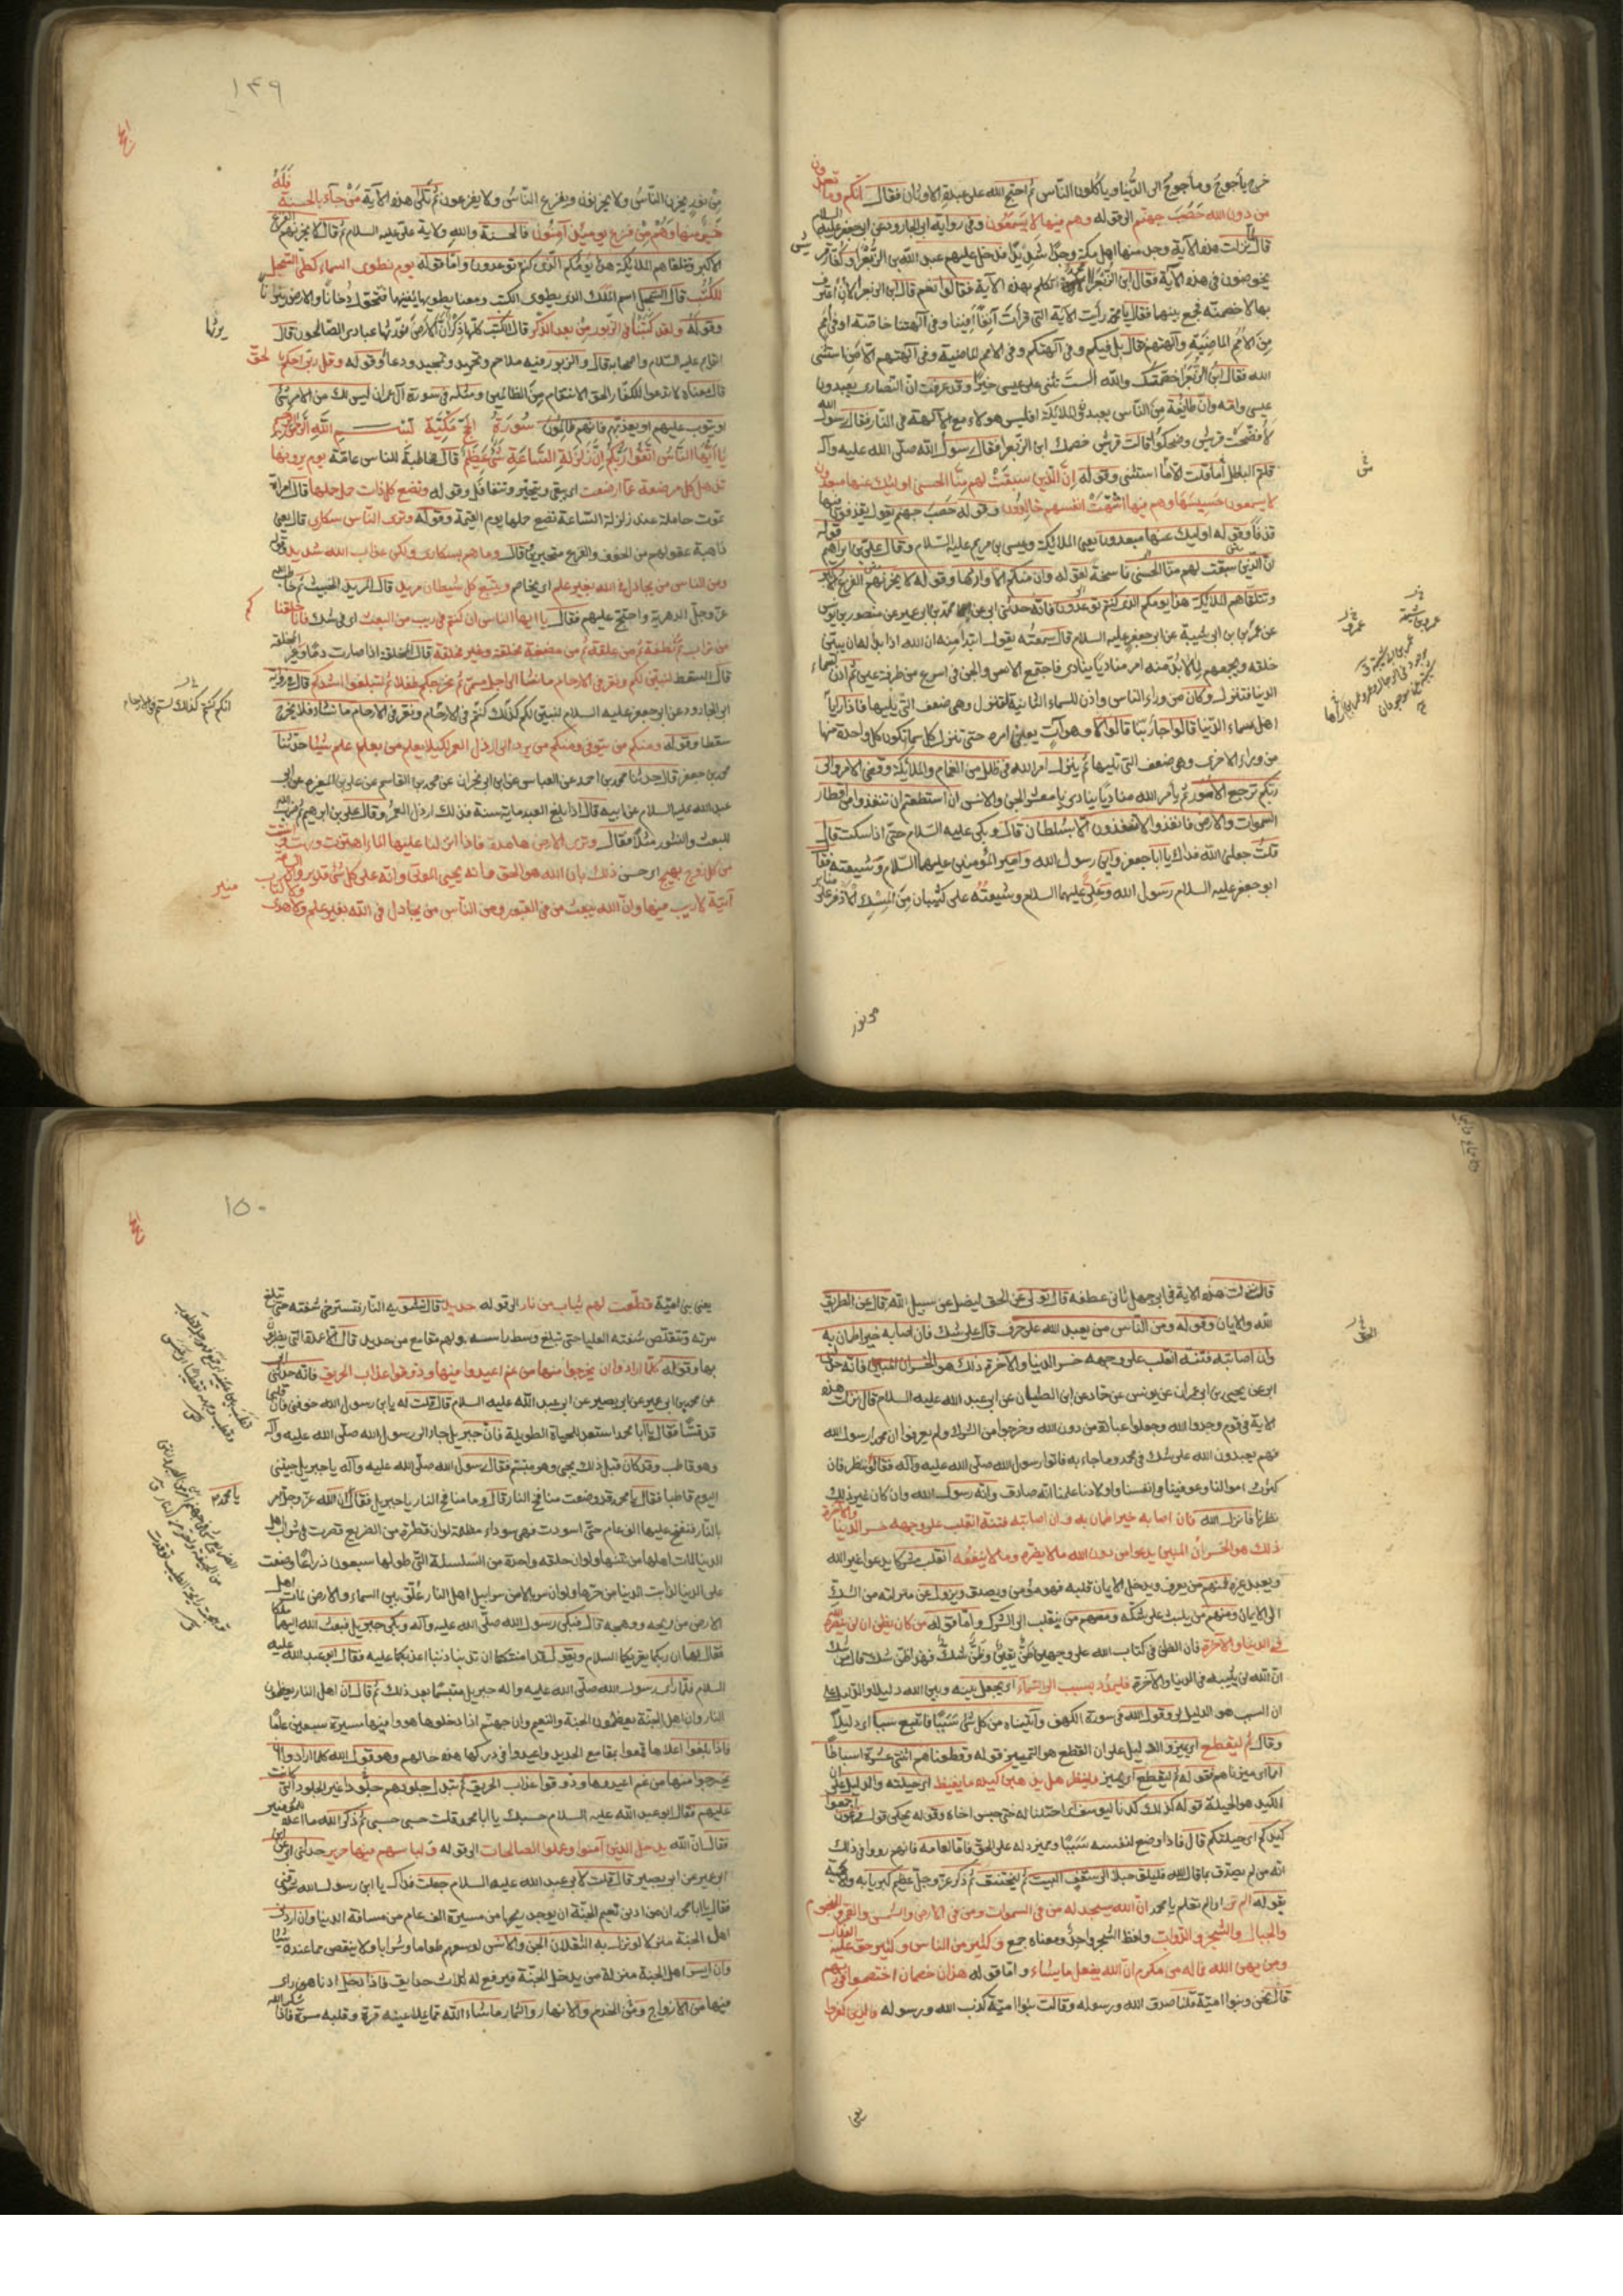 خرج يأجوج ومأجوج الى الدنيا وياكلون الناس ثم احتج الله على عبدة الاوثان فقال انكم وما تعبدون
من دون الله حصب جهنم الى قوله وهم فيها لا يسمعون وفي رواية ابي الجارود عن ابي جعفر عليه السلام
قال لما نزلت هذه الآية وجد منها اهل مكة وجدا شديدا فدخل عليهم عبد الله بن الزبعرا وكفار قريش
يخوضون في هذه الآية فقال ابن الزبعرا امحمد تكلم بهذه الآية فقالوا نعم قال ابن الزبعرا لان اعترف
بها لاخصمنه فجمع بينهما فقال يا محمد رأيت الآية التي قرأت آنفا افينا وفي آلهتنا خاصة او في امم
من الامم الماضية وآلهتهم قال بل فيكم وفي آلهتكم وفي الامم الماضية وفي آلهتهم الا من استثنى
الله فقال ابن الزبعرا خصمتك والله الست تثني على عيسى خيرا وقد عرفت ان النصارى يعبدون
عيسى وامه وان طايفة من الناس يعبدون الملائكة افليس هولاء مع الآلهة في النار فقال رسول الله
لا فضحت قريش وضحكوا قالت قريش خصمك ابن الزبعرا فقال رسول الله صلى الله عليه وآله
قلتم الباطل أما قلت الا من استثنى وقوله ان الذين سبقت لهم منا الحسنى اوليك عنها مبعدون
لا يسمعون حسيسها وهم فيها اشتهت انفسهم خالدون وقوله حصب جهنم يقول يقذفون فيها
قذفا وقوله اوليك عنها مبعدون يعني الملائكة وعيسى بن مريم عليه السلام وقال علي بن ابراهيم قوله
ان الذين سبقت لهم منا الحسنى ناسخة لقوله وان منكم الا واردها وقوله لا يحزنهم الفزع الاكبر
وتتلقاهم الملائكة هذا يومكم الذي كنتم توعدون فانه حدثني ابي عن محمد بن ابي عمير عن منصور بن يونس
عن عمرو بن ابي شيبة عن ابي جعفر عليه السلام قال سمعته يقول ابتداء منه ان الله اذا بدا له ان يبين
خلقه ويجمعهم لما لا بد منه امر مناديا ينادي فاجتمع الانس والجن في اسرع من طرفة عين ثم اذن لسماء
الدنيا فتنزل وكان من وراء الناس واذن للسماء الثانية فتنزل وهي ضعف التي يليها فاذا رآها
اهل سماء الدنيا قالوا جاء ربنا قالوا لا وهو آت يعني امره حتى تنزل كل سماء تكون كل واحدة منها
من وراء الاخرى وهي ضعف التي تليها ثم ينزل امر الله في ظلل من الغمام والملائكة وقضي الامر والى
ربكم ترجع الامور ثم يأمر الله مناديا ينادي يا معشر الجن والانس ان استطعتم ان تنفذوا من اقطار
السموات والارض فانفذوا لا تنفذون الا بسلطان قال وبكى عليه السلام حتى اذا سكت قال
قلت جعلني الله فداك يا ابا جعفر واين رسول الله وامير المؤمنين عليهما السلام وشيعته فقال
ابو جعفر عليه السلام رسول الله وعلي عليهما السلام وشيعته على كثبان من المسك الاذفر على منابر
من نور
١٤٩
من نور يحزن الناس ولا يحزنون ويفزع الناس ولا يفزعون ثم تلا هذه الآية من جاء بالحسنة فله
خير منها وهم من فزع يوميذ آمنون فالحسنة والله ولاية علي عليه السلام ثم قال لا يحزنهم الفزع
الاكبر وتتلقاهم الملائكة هذا يومكم الذي كنتم توعدون واما قوله يوم نطوي السماء كطي السجل
للكتب قال السجل اسم الملك الذي يطوي الكتب ومعنا يطويها يفنيها فتتحول دخانا والارض نيرانا
وقوله ولقد كتبنا في الزبور من بعد الذكر قال الكتب كلها ذكر ان الارض يرثها عبادي الصالحون قال
القايم عليه السلام واصحابه قال والزبور فيه ملاحم وتحميد وتمجيد ودعاء وقوله وقل رب احكم بالحق
قال معناه لا تدعوا للكفار الحق الانتقام من الظالمين ومثله في سورة آل عمران ليس لك من الامر شئ
او يتوب عليهم او يعذبهم فانهم ظالمون سورة الحج مكية بسم الله الرحمن الرحيم
يا ايها الناس اتقوا ربكم ان زلزلة الساعة شئ عظيم قال مخاطبة للناس عامة يوم ترونها
تذهل كل مرضعة عما ارضعت اي تبقى وتتحير وتتغافل وقوله وتضع كل ذات حمل حملها قال امراة
تموت حاملة عند زلزلة الساعة تضع حملها يوم القيمة وقوله وترى الناس سكارى قال يعني
ذاهبة عقولهم من الخوف والفزع متحيرين قال وما هم بسكارى ولكن عذاب الله شديد قوله
ومن الناس من يجادل في الله بغير علم اي يخاصم ويتبع كل شيطان مريد قال المريد الخبيث ثم خاطب الله
عز وجل الدهرية واحتج عليهم فقال يا ايها الناس ان كنتم في ريب من البعث اي في شك فانا خلقناكم
من تراب ثم من نطفة ثم من علقة ثم من مضغة مخلقة وغير مخلقة قال المخلقة اذا صارت دما وغير المخلقة
قال السقط لنبين لكم ونقر في الارحام ما نشاء الى اجل مسمى ثم نخرجكم طفلا ثم لتبلغوا اشدكم قال وفي رواية
ابي الجارود عن ابي جعفر عليه السلام لنبين لكم كذلك كنتم في الارحام ونقر في الارحام ما نشاء فلا يخرج
سقطا وقوله ومنكم من يتوفى ومنكم من يرد الى ارذل العمر لكيلا يعلم من بعد علم شيئا حدثنا
محمد بن جعفر قال حدثنا محمد بن احمد عن العباس عن ابن ابي نجران عن محمد بن القاسم عن علي بن المغيرة عن ابي
عبد الله عليه السلام عن ابيه قال اذا بلغ العبد ماية سنة فذلك ارذل العمر وقال علي بن ابراهيم ثم ضرب الله
للبعث والنشور مثلا فقال وترى الارض هامدة فاذا انزلنا عليها الماء اهتزت وربت وانبتت
من كل زوج بهيج اي حسن ذلك بان الله هو الحق وانه يحيي الموتى وانه على كل شئ قدير وان الساعة
آتية لا ريب فيها وان الله يبعث من في القبور ومن الناس من يجادل في الله بغير علم ولا هدى ولا كتاب منير
قال نزلت هذه الآية في ابي جهل ثاني عطفه قال تولى عن الحق ليضل عن سبيل الله قال عن الطريق
الله والايمان وقوله ومن الناس من يعبد الله على حرف قال على شك فان اصابه خير اطمان به
وان اصابته فتنة انقلب على وجهه خسر الدنيا والآخرة ذلك هو الخسران المبين فانه حدثني
ابي عن يحيى بن ابي عمران عن يونس عن حماد عن ابن الطيار عن ابي عبد الله عليه السلام قال نزلت هذه
الآية في قوم وحدوا الله وخلعوا عبادة من دون الله وخرجوا من الشرك ولم يعرفوا ان محمدا رسول الله
فهم يعبدون الله على شك في محمد وما جاء به فاتوا رسول الله صلى الله عليه وآله فقالوا ننظر فان
كثرت اموالنا وعوفينا في انفسنا واولادنا علمنا انه صادق وانه رسول الله وان كان غير ذلك
نظرنا فانزل الله فان اصابه خير اطمان به وان اصابته فتنة انقلب على وجهه خسر الدنيا والآخرة
ذلك هو الخسران المبين يدعوا من دون الله ما لا يضره وما لا ينفعه انقلب مشركا يدعوا غير الله
ويعبد غيره فمنهم من يعرف ويدخل الايمان قلبه فهو مؤمن ويصدق ويزول عن منزلته من الشك
الى الايمان ومنهم من يلبث على شكه ومنهم من ينقلب الى الشرك واما قوله من كان يظن ان لن ينصره الله
في الدنيا والآخرة فان الظن في كتاب الله على وجهين ظن يقين وظن شك فهذا ظن شك قال من شك
ان الله لن يثيبه في الدنيا والآخرة فليمدد بسبب الى السماء اي يجعل بينه وبين الله دليلا والدليل على
ان السبب هو الدليل قول الله في سورة الكهف وآتيناه من كل شئ سببا فاتبع سببا اي دليلا
وقال ثم ليقطع اي يميز والدليل على ان القطع هو التمييز قوله وقطعناهم اثنتي عشرة اسباطا
امما اي ميزناهم فقوله ثم ليقطع اي يميز فلينظر هل يذهبن كيده ما يغيظ اي حيلته والدليل على ان
الكيد هو الحيلة قوله كذلك كدنا ليوسف اي احتلنا له حتى حبس اخاه وقوله يحكي قول فرعون اجمعوا
كيدكم اي حيلتكم قال فاذا وضع لنفسه سببا وميز دله على الحق فاما العامة فانهم رووا في ذلك
انه من لم يصدق بما قال الله فليلق حبلا الى سقف البيت ثم ليختنق ثم ذكر عز وجل عظيم كبريايه وآلائه
بقوله الم تر اي الم تعلم يا محمد ان الله يسجد له من في السموات ومن في الارض والشمس والقمر والنجوم
والجبال والشجر والدواب ولفظ الشجر واحد ومعناه جمع وكثير من الناس وكثير حق عليه العذاب
ومن يهن الله فما له من مكرم ان الله يفعل ما يشاء واما قوله هذان خصمان اختصموا في ربهم
قال نحن وبنوا امية قلنا صدق الله ورسوله وقالت بنوا امية كذب الله ورسوله فالذين كفروا
يعني
١٥٠
يعني بني امية قطعت لهم ثياب من نار الى قوله حديد قال تشويه النار فتسترخي شفته حتى تبلغ
سرته وتتقلص شفته العليا حتى تبلغ وسط راسه ولهم مقامع من حديد قال الاعمدة التي يضربون
بها وقوله كلما ارادوا ان يخرجوا منها من غم اعيدوا فيها وذوقوا عذاب الحريق فانه حدثني ابي
عن محمد بن ابي عمير عن ابي بصير عن ابي عبد الله عليه السلام قال قلت له يابن رسول الله خوفني فان قلبي
قد قسا فقال يا ابا محمد استعد للحياة الطويلة فان جبريل جاء الى رسول الله صلى الله عليه وآله
وهو قاطب وقد كان قبل ذلك يجئ وهو متبسم فقال رسول الله صلى الله عليه وآله يا جبريل جئتني
اليوم قاطبا فقال يا محمد قد وضعت منافخ النار قال وما منافخ النار يا جبريل فقال ان الله عز وجل امر
بالنار فنفخ عليها الف عام حتى اسودت فهي سوداء مظلمة لو ان قطرة من الضريع قطرت في شراب اهل
الدنيا لمات اهلها من نتنها ولو ان حلقة واحدة من السلسلة التي طولها سبعون ذراعا وضعت
على الدنيا لذابت الدنيا من حرها ولو ان سربالا من سرابيل اهل النار علق بين السماء والارض لمات اهل
الارض من ريحه ووهجه قال فبكى رسول الله صلى الله عليه وآله وبكى جبريل فبعث الله اليهما ملكا
فقال لهما ان ربكما يقرئكما السلام ويقول قد امنتكما ان تذنبا ذنبا اعذبكما عليه فقال ابو عبد الله عليه
السلام فما رأى رسول الله صلى الله عليه وآله جبريل متبسما بعد ذلك ثم قال ان اهل النار يعظمون
النار وان اهل الجنة يعظمون الجنة والنعيم وان جهنم اذا دخلوها هووا فيها مسيرة سبعين عاما
فاذا بلغوا اعلاها قمعوا بمقامع الحديد واعيدوا في دركها هذه حالهم وهو قول الله كلما ارادوا ان
يخرجوا منها من غم اعيدوا فيها وذوقوا عذاب الحريق ثم تبدل جلودهم جلودا غير الجلود التي كانت
عليهم فقال ابو عبد الله عليه السلام حسبك يا ابا محمد قلت حسبي حسبي ثم ذكر الله ما اعده للمؤمنين
فقال ان الله يدخل الذين آمنوا وعملوا الصالحات الى قوله ولباسهم فيها حرير حدثني ابي عن ابن
ابي عمير عن ابي بصير قال قلت لابي عبد الله عليه السلام جعلت فداك يا ابن رسول الله شوقني
فقال يا ابا محمد ان من ادنى نعيم الجنة ان يوجد ريحها من مسيرة الف عام من مسافة الدنيا وان ادنى
اهل الجنة منزلا لو نزل به الثقلان الجن والانس لوسعهم طعاما وشرابا ولا ينقص مما عنده شيئا
وان ايسر اهل الجنة منزلة من يدخل الجنة فيرفع له ثلاث حدايق فاذا دخل ادناهن رأى
فيها من الازواج والخدم والانهار والثمار ما شاء الله مما يملأ عينه قرة وقلبه مسرة فاذا شكر الله